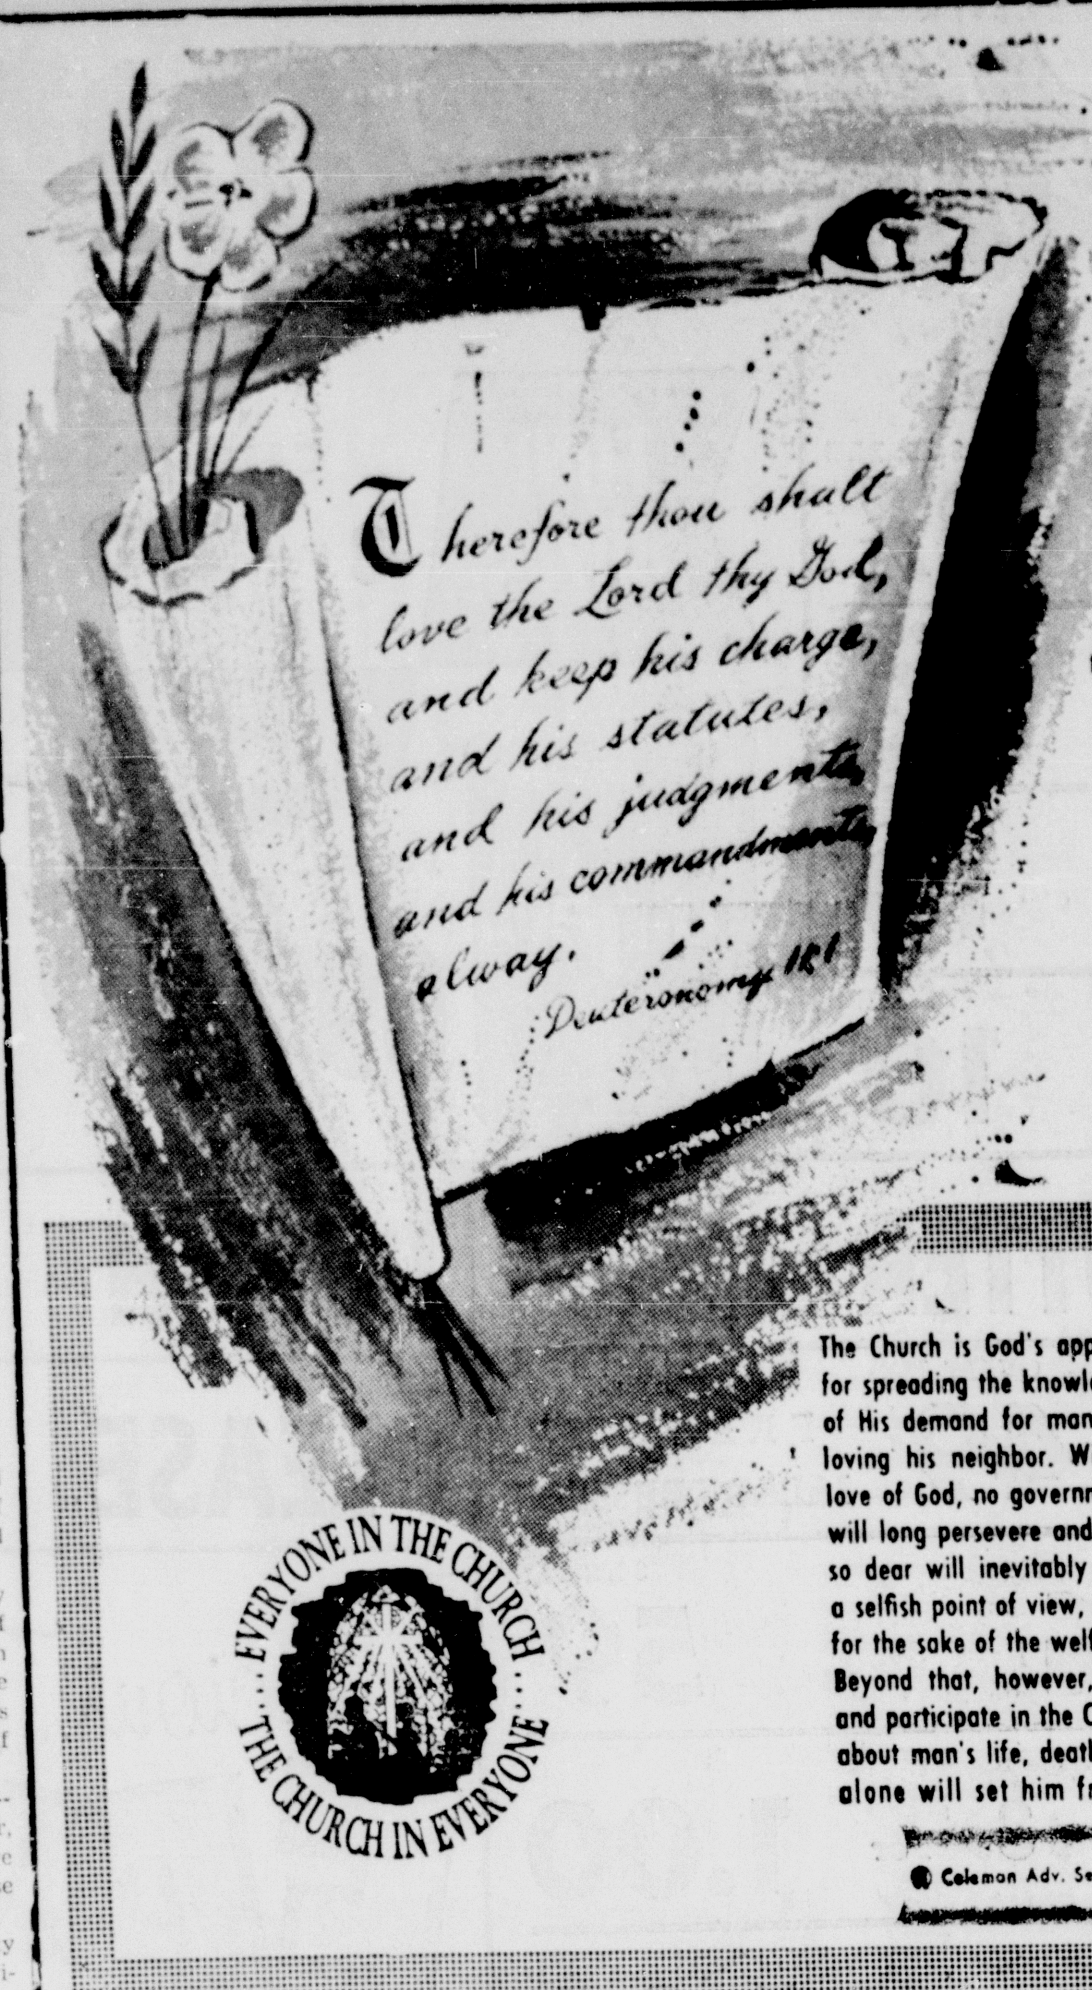 Therefore thou shalt
love the Lord thy God,
and keep his charge,
and his statutes,
and his judgments,
and his commandments,
alway.
Deuteronomy 11:1
The Church is God's app
for spreading the knowl
of His demand for man
loving his neighbor. W
love of God, no governm
will long persevere and
so dear will inevitably
a selfish point of view,
for the sake of the welf
Beyond that, however,
and participate in the C
about man's life, death
alone will set him fr
EVERYONE IN THE CHURCH
... THE CHURCH IN EVERYONE ...
Coleman Adv. Se